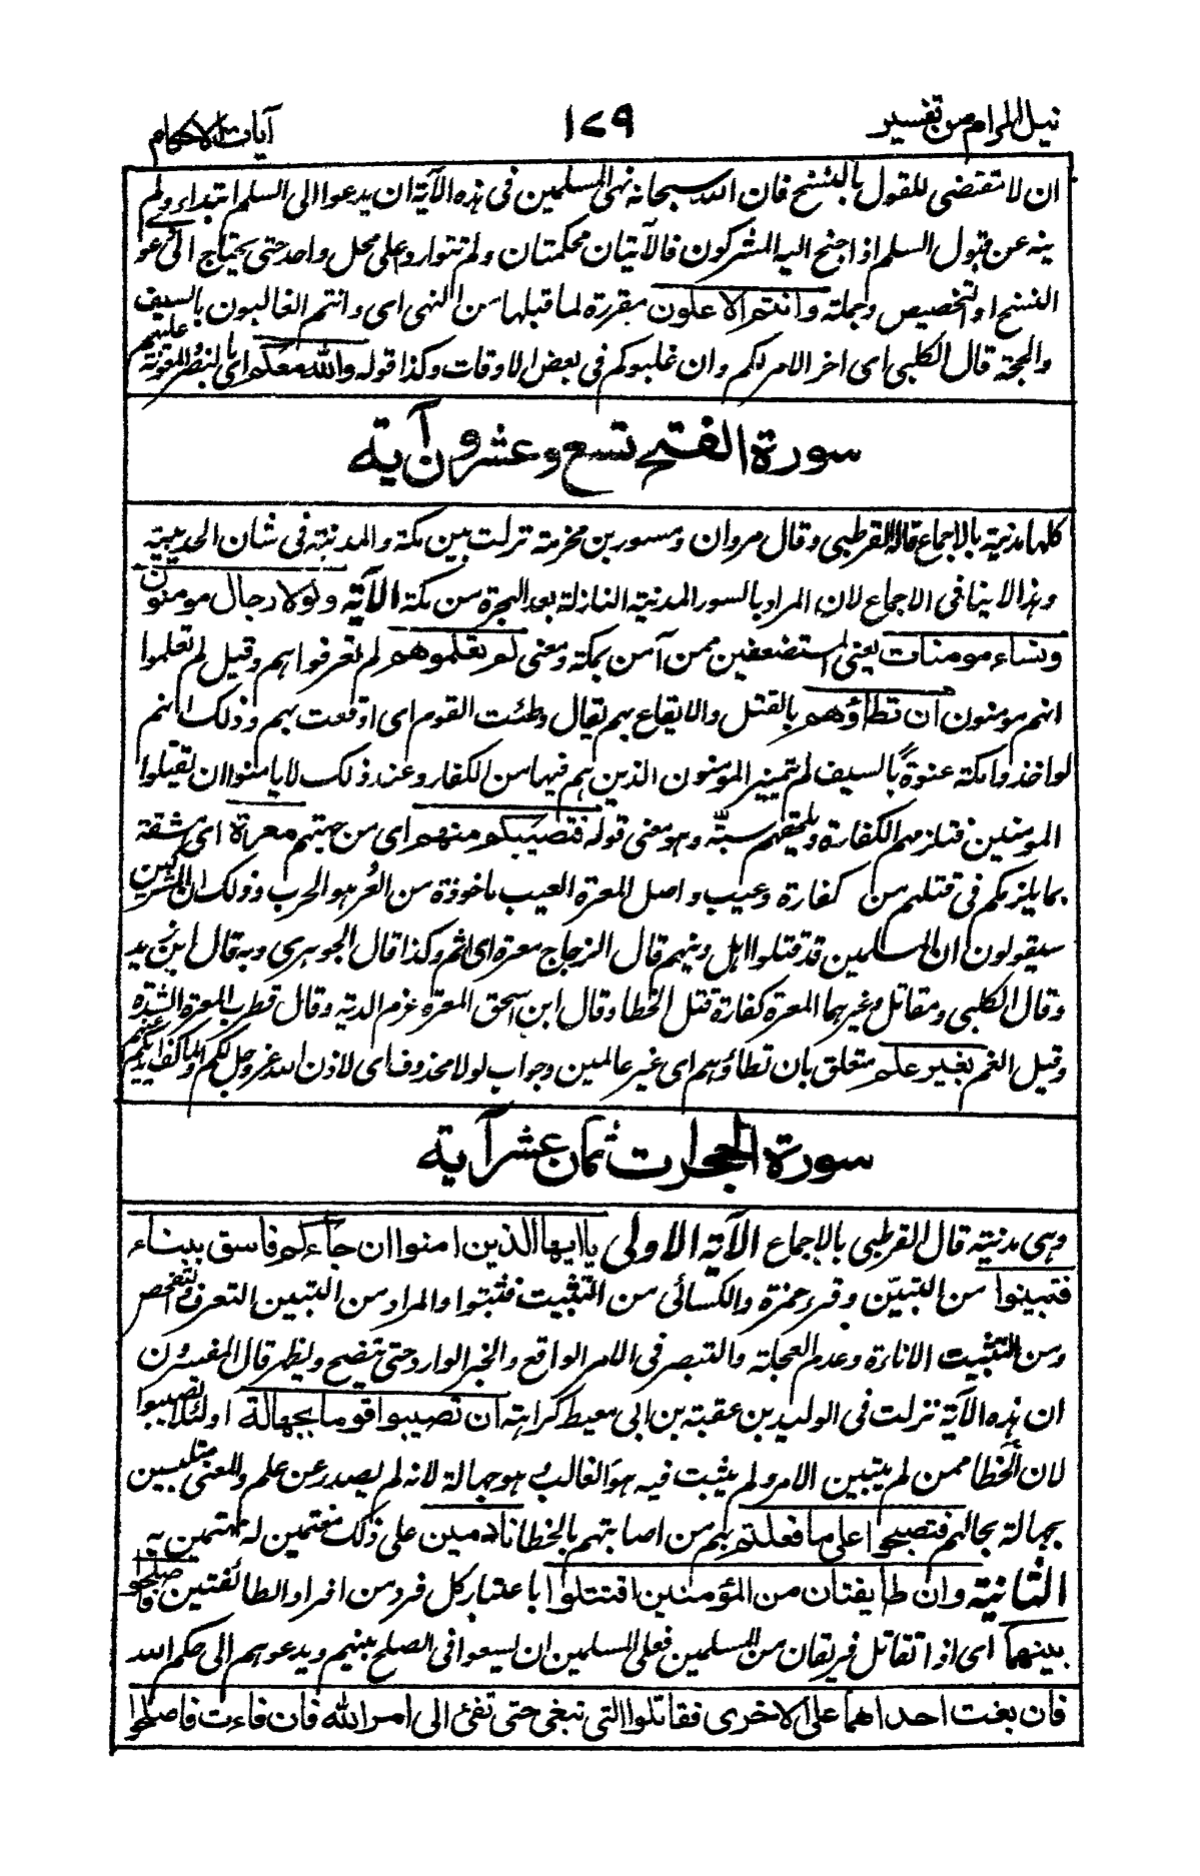 نيل المرام من تفسير
١٧٩
آيات الاحكام
ان لا تقتضى للقول بالنسخ فان الله سبحانه نهى المسلمين فى هذه الآية ان يدعوا الى السلم ابتداء ولم
ينه عن قبول السلم اذا جنح اليه المشركون فالآيتان محكمتان ولم تتواردا على محل واحد حتى يحتاج الى دعوى
النسخ او التخصيص وجملة وانتم الاعلون مقررة لما قبلها من النهى اى وانتم الغالبون بالسيف
والحجة قال الكلبى اى اخر الامر لكم وان غلبوكم فى بعض الاوقات وكذا قوله والله معكم اى بالنصر والمعونة عليهم
سورة الفتح تسع وعشرون آية
كلها مدنية بالاجماع قاله القرطبى وقال مروان ومسور بن مخرمة نزلت بين مكة والمدينة فى شان الحديبية
وهذا لا ينافى الاجماع لان المراد بالسور المدنية النازلة بعد الهجرة من مكة الآية ولولا رجال مومنون
ونساء مومنات يعنى المستضعفين ممن آمن بمكة ومعنى لم تعلموهم لم تعرفوا هم وقيل لم تعلموا
انهم مومنون ان تطاؤهم بالقتل والايقاع بهم يقال وطئت القوم اى اوقعت بهم وذلك انهم
لو اخذوا مكة عنوة بالسيف لم يتميز المؤمنون الذين هم فيها من الكفار وعند ذلك لا يامنوا ان يقتلوا
المومنين فتلزمهم الكفارة ويلحقهم سبة وهو معنى قوله فتصيبكم منهم اى من جهتهم معرة اى مشقة
بما يلزمكم فى قتلهم من كفارة وعيب واصل المعرة العيب ماخوذة من العر هو الجرب وذلك ان المشركين
سيقولون ان المسلمين قد قتلوا اهل دينهم قال الزجاج معرة اى اثم وكذا قال الجوهرى وبه قال ابن زيد
وقال الكلبى ومقاتل وغيرهما المعرة كفارة قتل الخطا وقال ابن اسحق المعرة غرم الدية وقال قطرب المعرة الشدة
وقيل الغم بغير علم متعلق بان تطاؤهم اى غير عالمين وجواب لولا محذوف اى لاذن الله عز وجل لكم او لما كف ايديكم عنهم
سورة الحجرات ثمان عشر آية
وهى مدنية قال القرطبى بالاجماع الآية الاولى يا ايها الذين امنوا ان جاءكم فاسق بنباء
فتبينوا من التبيّن وقرء حمزة والكسائى من التثبيت فتثبتوا والمراد من التبين التعرف والتفحص
ومن التثبيت الاناءة وعدم العجلة والتبصر فى الامر الواقع والخبر الوارد حتى يتضح ويظهر قال المفسرون
ان هذه الآية نزلت فى الوليد بن عقبة بن ابى معيط كراهة ان تصيبوا قوما بجهالة او لئلا تصيبوا
لان الخطا ممن لم يتبين الامر ولم يثبت فيه هو الغالب وهو جهالة لانه لم يصدر عن علم والمعنى متلبسين
بجهالة بحالهم فتصبحوا على ما فعلتم بهم من اصابتهم بالخطا نادمين على ذلك مغتمين له مهتمين به
الثانية وان طايفتان من المؤمنين اقتتلوا باعتبار كل فرد من افراد الطائفتين فاصلحوا
بينهما اى اذا تقاتل فريقان من المسلمين فعلى المسلمين ان يسعوا فى الصلح بينهم ويدعوهم الى حكم الله
فان بغت احداهما على الاخرى فقاتلوا التى تبغى حتى تفئ الى امر الله فان فاءت فاصلحوا